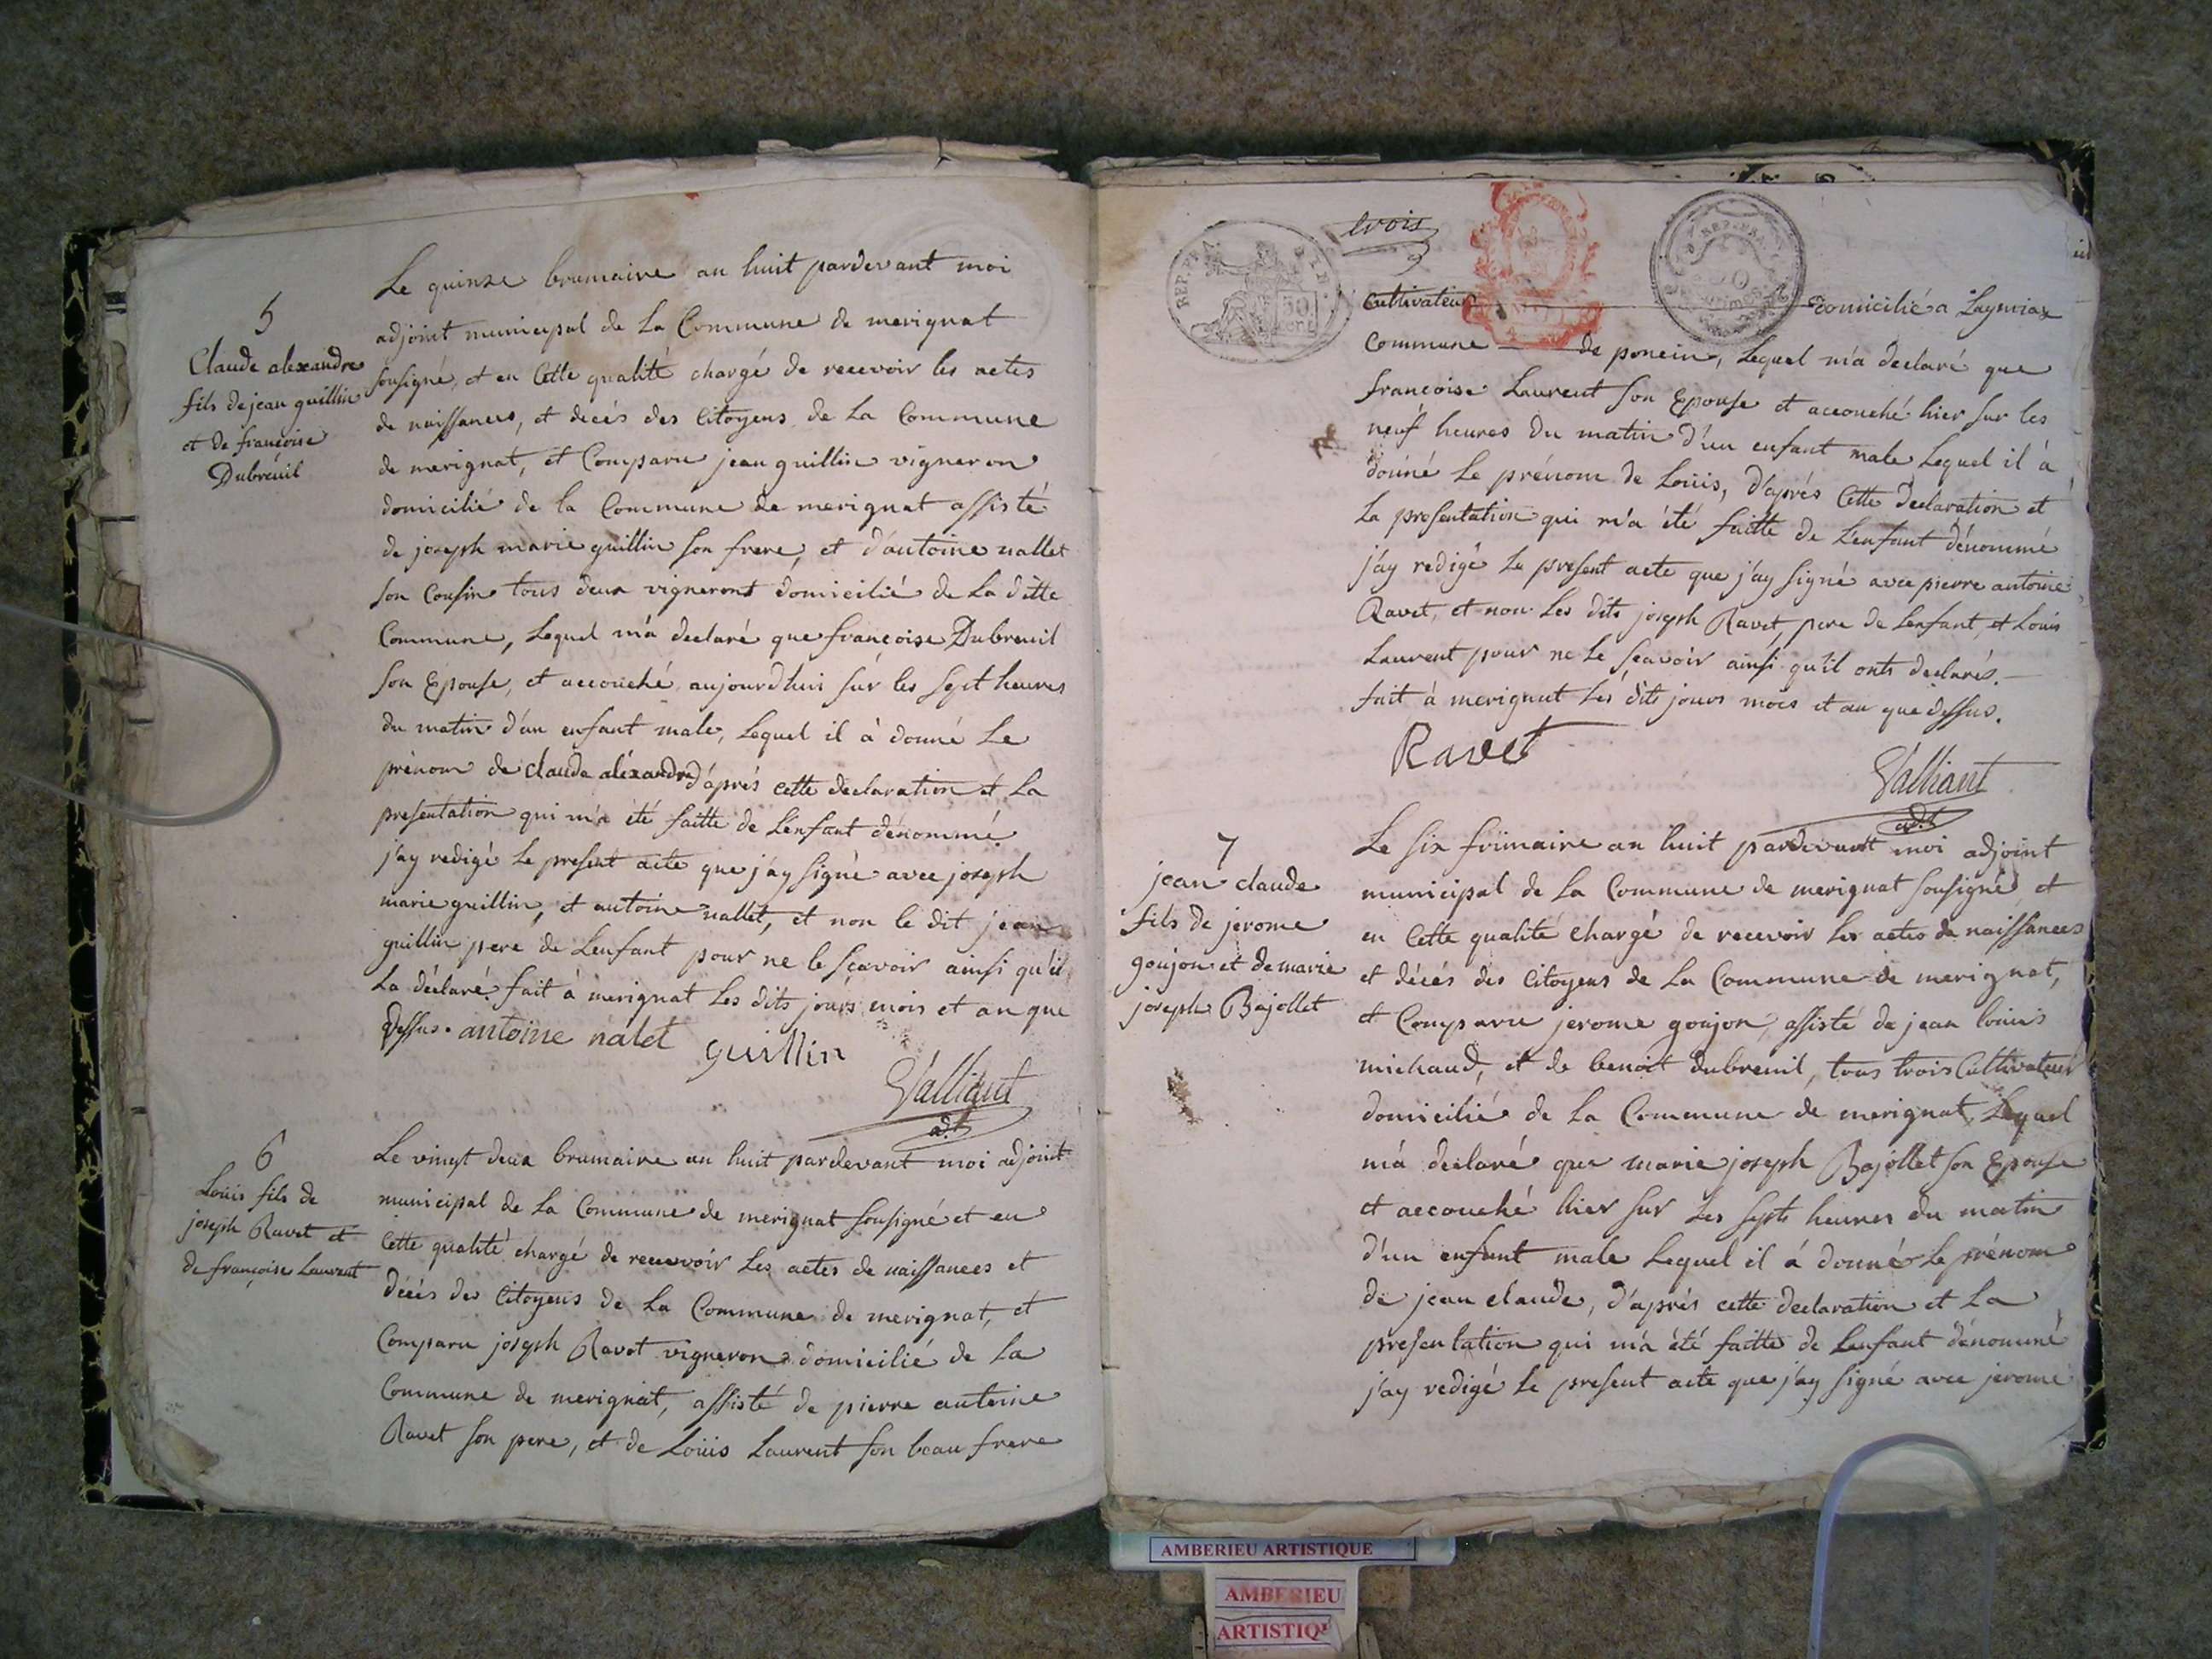 5
Claude alexandre
fils de jean guillin
et de françoise
Dubreuil
Le quinze brumaire an huit pardevant moi
adjoint municipal de La Commune de merignat
sousigné, et en Cette qualité chargé de recevoir les actes
de naissances, et decés des Citoyens de La Commune
de merignat, et Comparu jean guillin vigneron
domicilié de la Commune de merignat assisté
de joseph marie guillin son frere, et d'antoine nallet
son Cousin tous deux vignerons domicilié de La ditte
Commune, Lequel m'a declaré que françoise Dubreuil
son Epouse, et accouché aujourdhui sur les sept heures
du matin d'un enfant male, Lequel il à donné Le
prénom de claude aléxandre d'aprés cette declaration et La
presentation qui m'a été faitte de L'enfant dénommé
j'ay redigé Le present acte que j'ay signé avec joseph
marie guillin, et antoine nallet, et non le dit jean
guillin pere de L'enfant pour ne le sçavoir ainsi qu'il
La déclaré. fait à merignat Les dits jours mois et an que
dessus. antoine nalet guillin
Valliant
adt
6
Loüis fils de
joseph Ravet et
de françoise Laurent
Le vingt deux brumaire an huit pardevant moi adjoint
municipal de La Commune de merignat sousigné et en
Cette qualité chargé de recevoir Les actes de naissances et
décés des Citoyens de La Commune de merignat, et
Comparu joseph Ravet vigneron domicilié de La
Commune de merignat, assisté de pierre antoine
Ravet son pere, et de Loüis Laurent son beau frere
trois
REP. FRA.
50
cent
Cultivateur domicilié a
Commune de poncin, Lequel m'a declaré que
françoise Laurent son Epouse et accouché hier sur les
neuf heures du matin d'un enfant male Lequel il à
donné Le prénom de Loüis, d'aprés Cette declaration et
La presentation qui m'a été faitte de L'enfant dénommé
j'ay redigé Le present acte que j'ay signé avec pierre antoine
Ravet, et non Les dits joseph Ravet, pere de Lenfant, et Louis
Laurent pour ne Le sçavoir ainsi qu'il onts declarés.
fait à merignat Les dits jours mois et an que dessus.
Ravet
Valliant
adt
7
jean claude
fils de jerome
goujon et de marie
joseph Bajollet
Le six frimaire an huit pardevant moi adjoint
municipal de La Commune de merignat sousigné et
en Cette qualité chargé de recevoir Les actes de naissances
et décés des Citoyens de La Commune de merignat,
et Comparu jerome goujon, assisté de jean louis
michaud, et de benoit dubreuil, tous trois Cultivateur
domicilié de La Commune de merignat, Lequel
m'à declaré que marie joseph Bajollet son Epouse
et accouché hier sur Les septs heures du matin
d'un enfant male Lequel il à donné Le prénom
de jean claude, d'aprés cette declaration et La
presentation qui m'a été faitte de Lenfant dénommé
j'ay redigé Le present acte que j'ay signé avec jerome
AMBERIEU ARTISTIQUE
AMBERIEU
ARTISTIQ